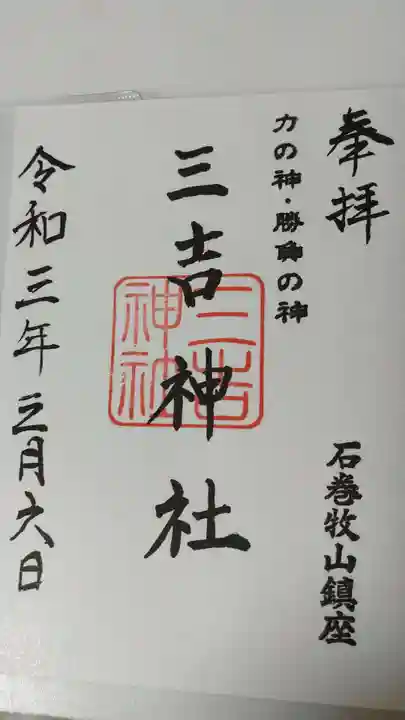 奉拝
石巻牧山鎮座
力の神・勝負の神
三吉神社
三吉
神社
令和三年三月六日